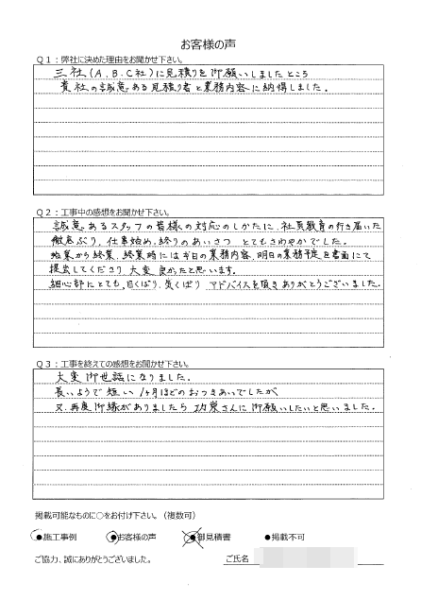 お客様の声
Q1：弊社に決めた理由をお聞かせ下さい。
三社(A.B.C社)に見積りを御願いしましたところ
貴社の誠意ある見積り書と業務内容に納得しました。
Q2：工事中の感想をお聞かせ下さい。
誠意あるスタッフの皆様の対応のしかたに、社員教育の行き届いた
徹底ぶり、仕事始め、終りのあいさつ とてもさわやかでした。
始業から終業、終業時には当日の業務内容、明日の業務予定を書面にて
提出してくださり大変良かったと思います。
細心部にとても、目くばり、気くばり アドバイスを頂きありがとうございました。
Q3：工事を終えての感想をお聞かせ下さい。
大変御世話になりました。
長いようで短い 1ヶ月ほどのおつきあいでしたが
又、再度御縁がありましたら さんに御願いしたいと思いました。
掲載可能なものに○をお付け下さい。（複数可）
●施工事例 ●お客様の声 ●御見積書 ●掲載不可
ご協力、誠にありがとうございました。 ご氏名